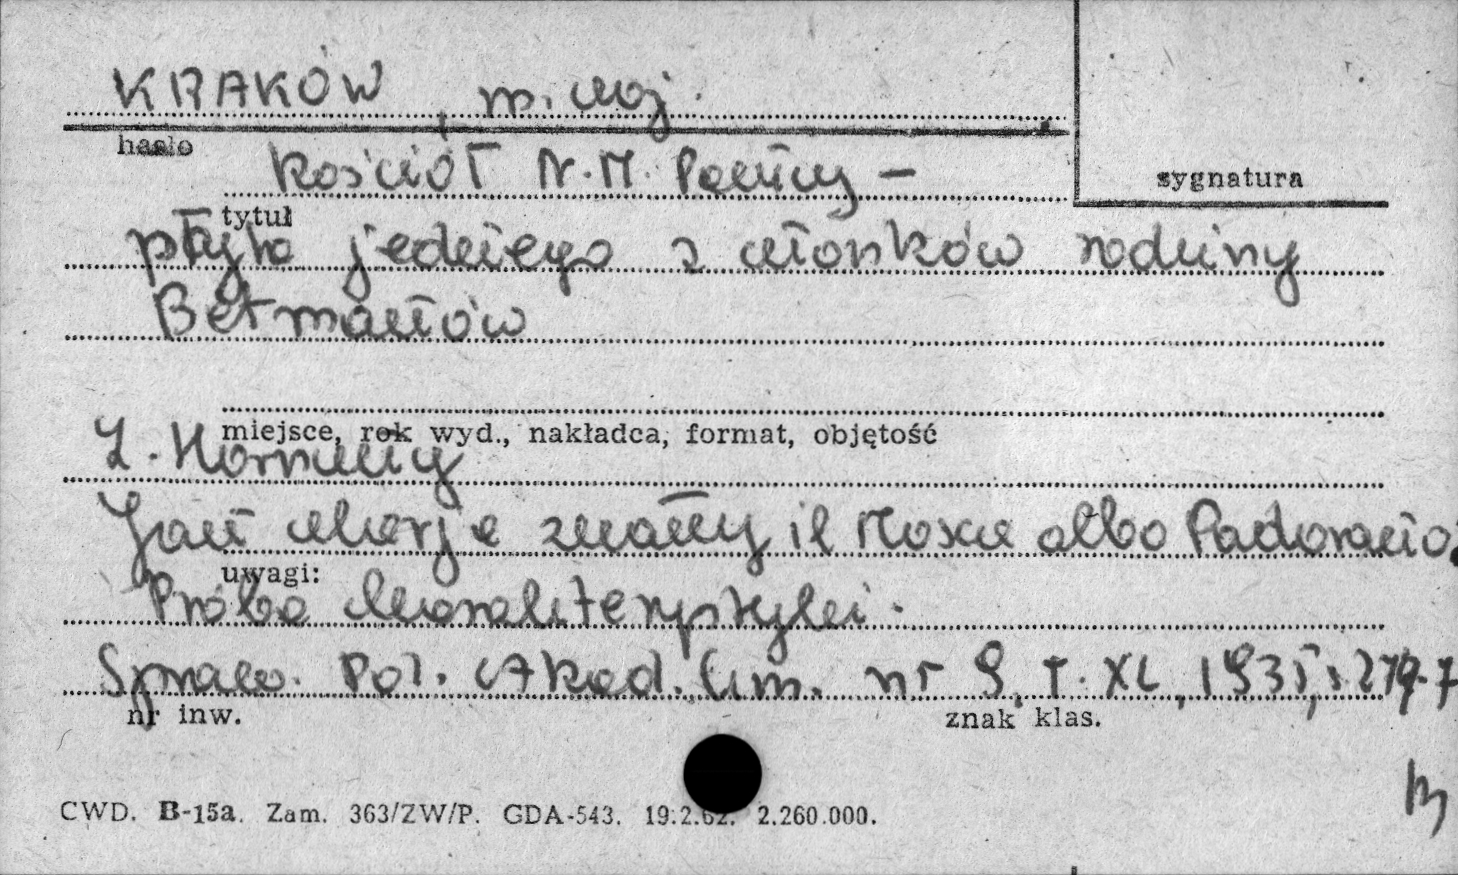 KRAKÓW, m. woj.
hasło
sygnatura
kościół N.M. Panny –
tytuł
płyta jednego z członków rodziny
Betmanów
miejsce, rok wyd., nakładca, format, objętość
Z. Hornung
Jan Maria znany il Mosca albo Padovano.
uwagi:
Próba charakterystyki.
Spraw. Pol. Akad. Um. nr 9, T. XL, 1935, s. 279-7
nr inw.
znak klas.
CWD. B-15a. Zam. 363/ZW/P. GDA-543. 19.2.62. 2.260.000.